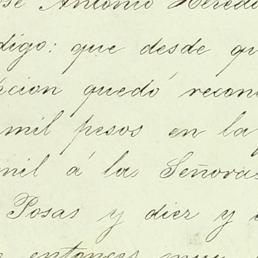 José Antonio Heredia
digo: que desde qu
cion quedó recono
mil pesos en la
mil á las Señoras
Posas y diez y
entonces muy